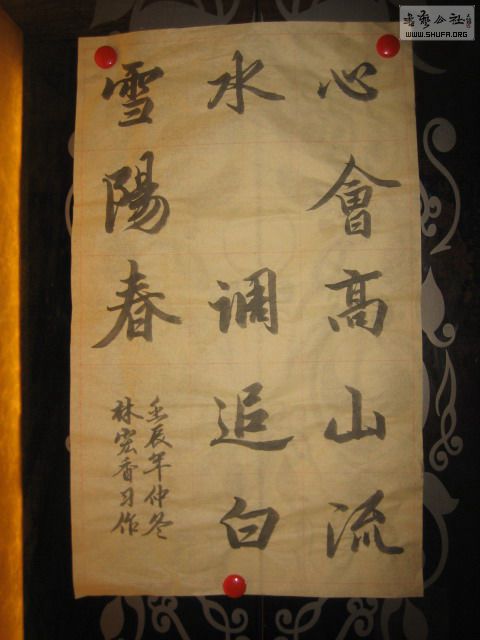 心會高山流
水 调追白
雪陽春
壬辰年仲冬
林宏香习作
书艺公社
WWW.SHUFA.ORG